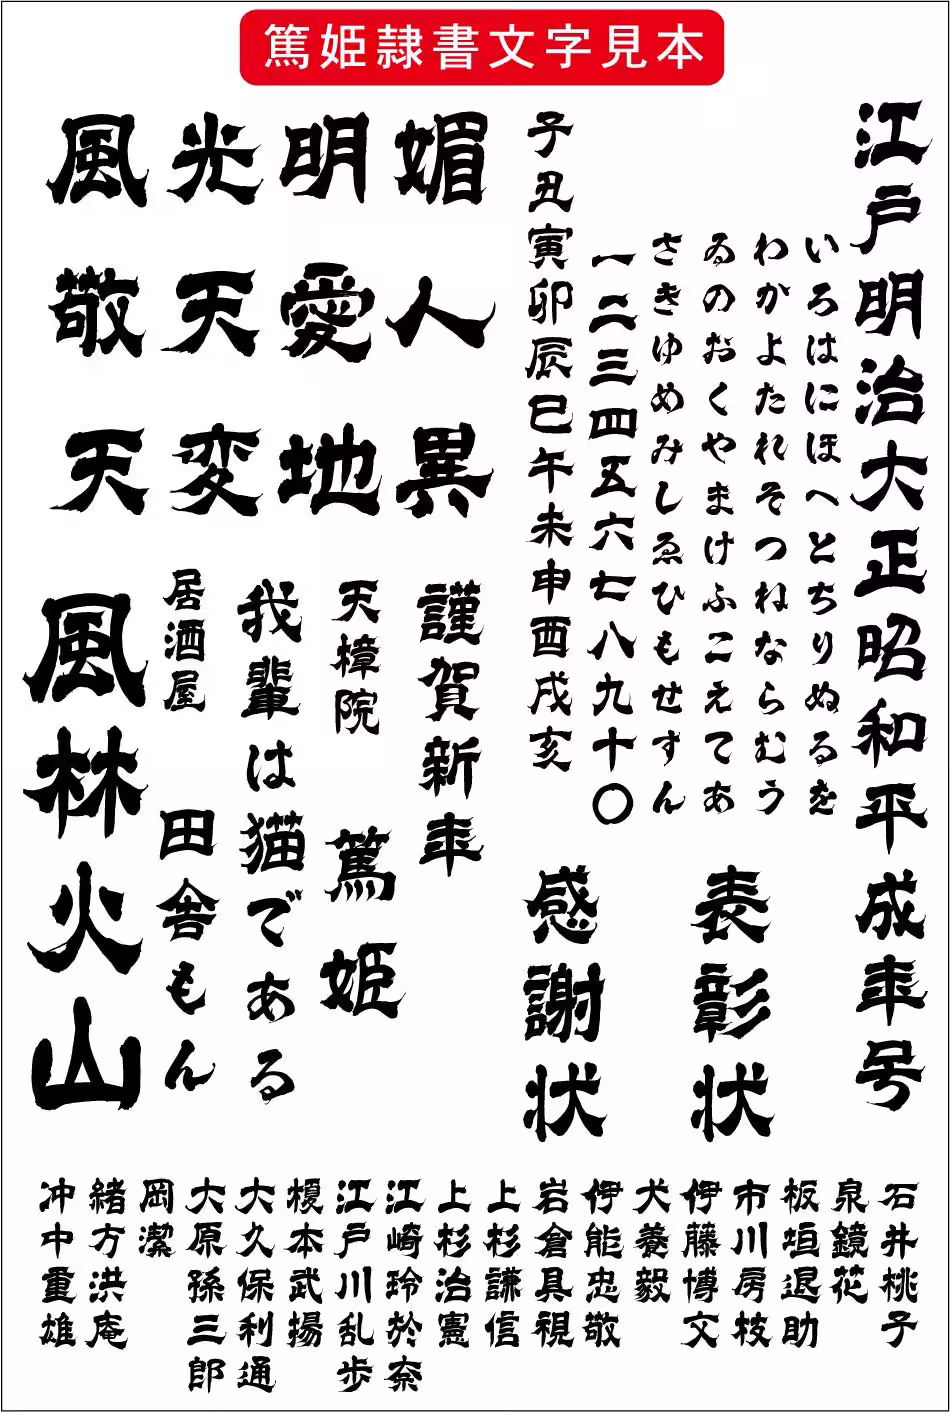 篤姫隷書文字見本
江戸明治大正昭和平成年号
いろはにほへとちりぬるを
わかよたれそつねならむう
ゐのおくやまけふこえてあ
さきゆめみしゑひもせすん
一二三四五六七八九十〇
子丑寅卯辰巳午未申酉戌亥
表彰状
感謝状
風光明媚
敬天愛人
天変地異
謹賀新年
天樟院
篤姫
我輩は猫である
居酒屋
田舎もん
風林火山
石井桃子
泉鏡花
板垣退助
市川房枝
伊藤博文
犬養毅
伊能忠敬
岩倉具視
上杉謙信
上杉治憲
江崎玲於奈
江戸川乱歩
榎本武揚
大久保利通
大原孫三郎
岡潔
緒方洪庵
冲中重雄